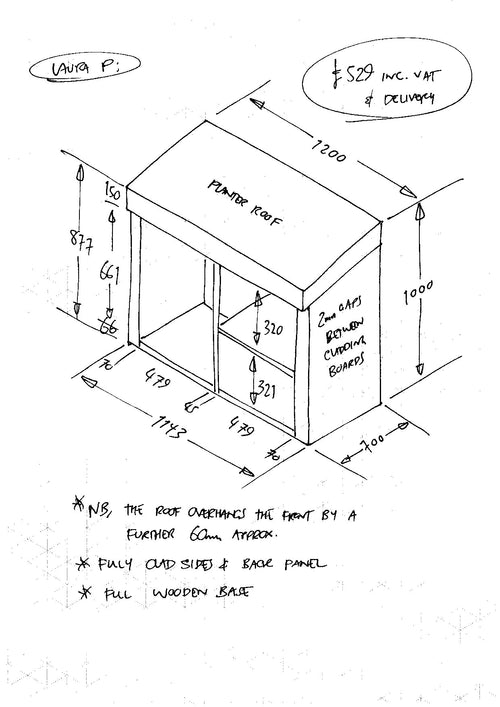 LAURA P:
£529 INC. VAT
& DELIVERY
1200
PLANTER ROOF
150
877
661
66
1000
2mm GAPS
BETWEEN
CLADDING
BOARDS
320
321
70
479
45
479
70
1143
700
* NB, THE ROOF OVERHANGS THE FRONT BY A
FURTHER 60mm APPROX.
* FULLY CLAD SIDES & BACK PANEL
* FULL WOODEN BASE